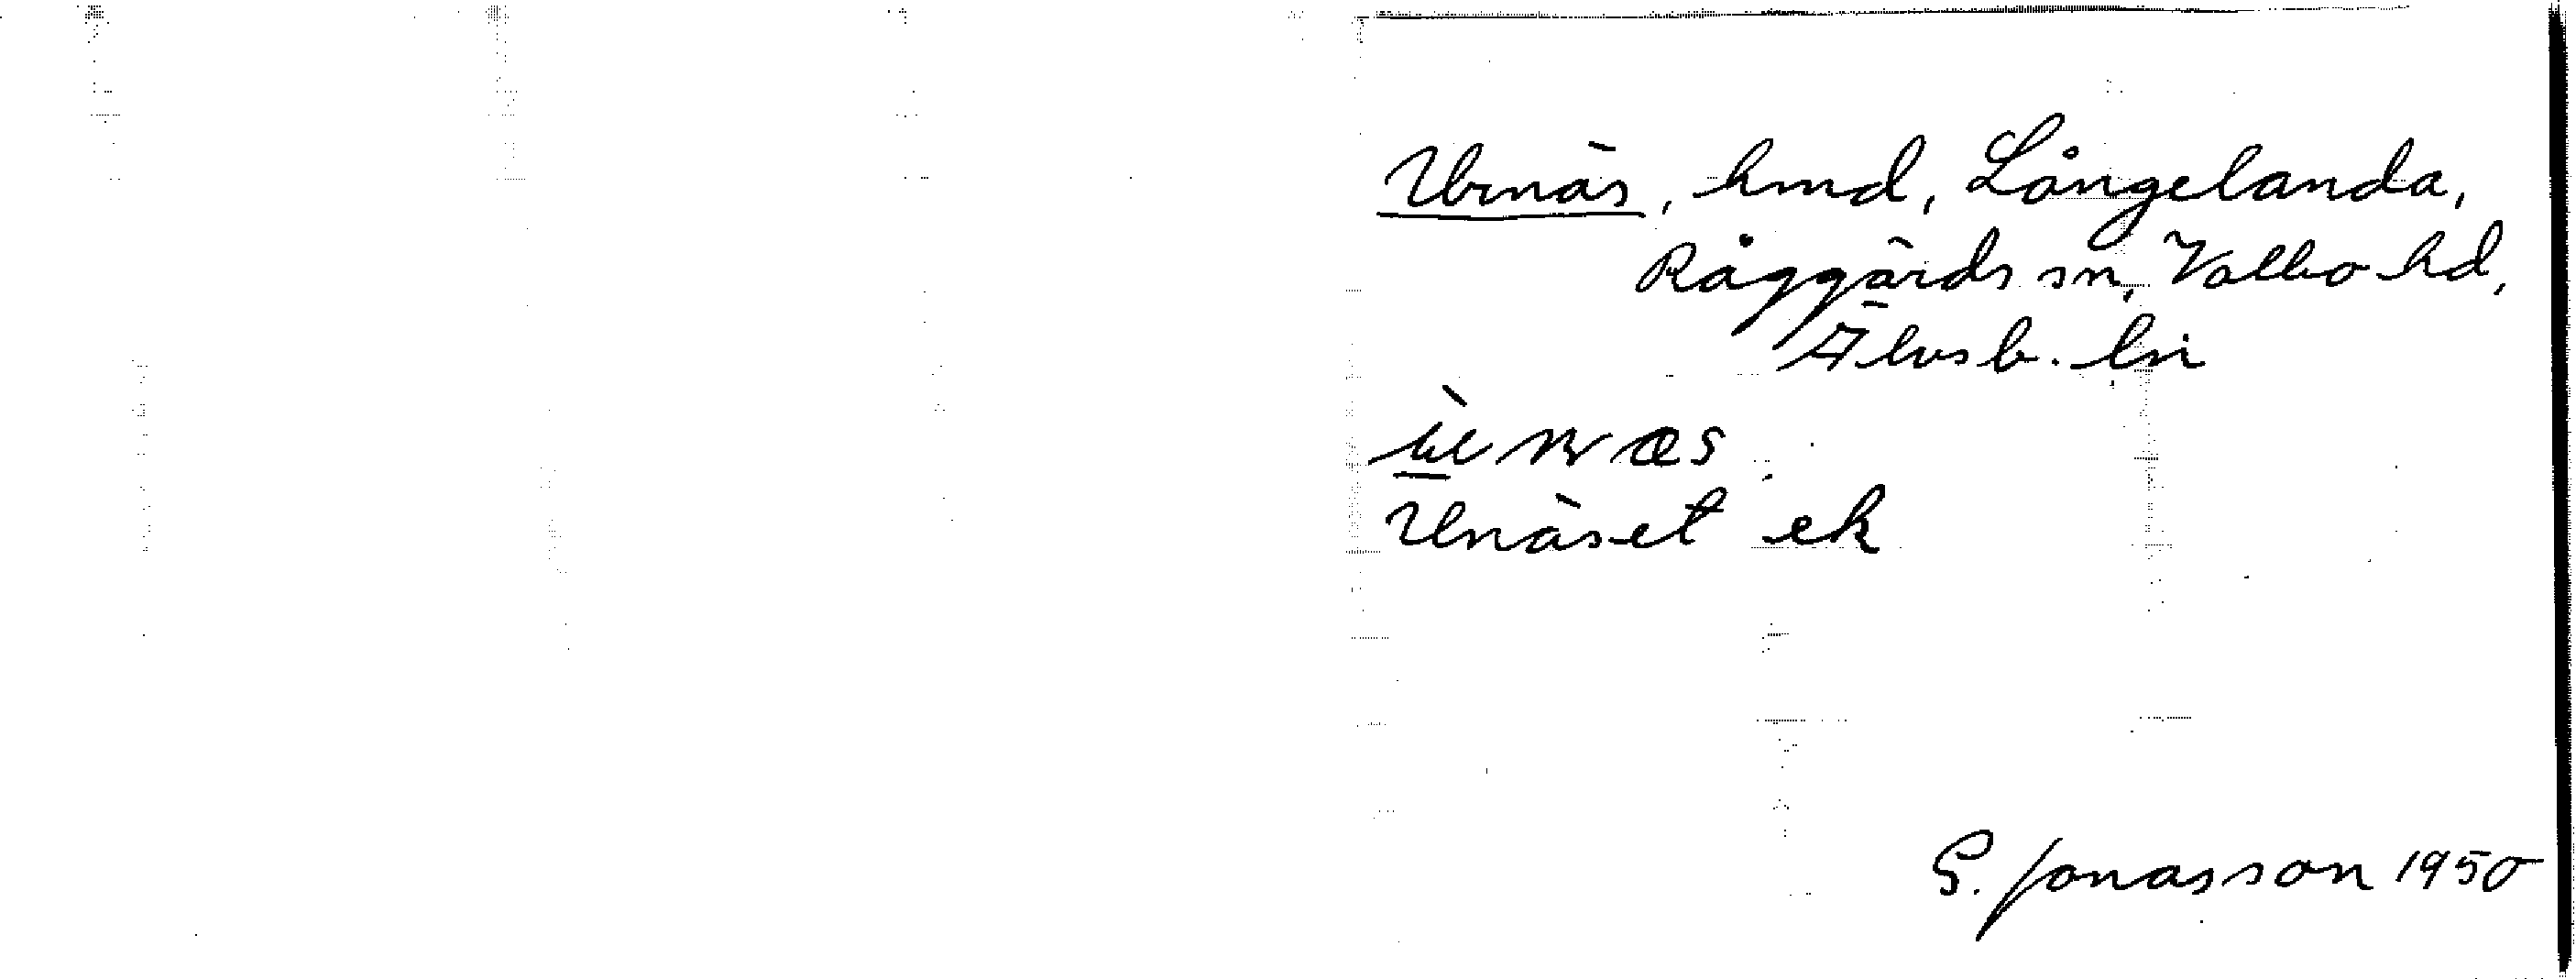 Urnäs, hmd, Långelanda,
Råggärds sn, Valbo hd,
Älvsb. län
Unäset ek
G. Jonasson 1950